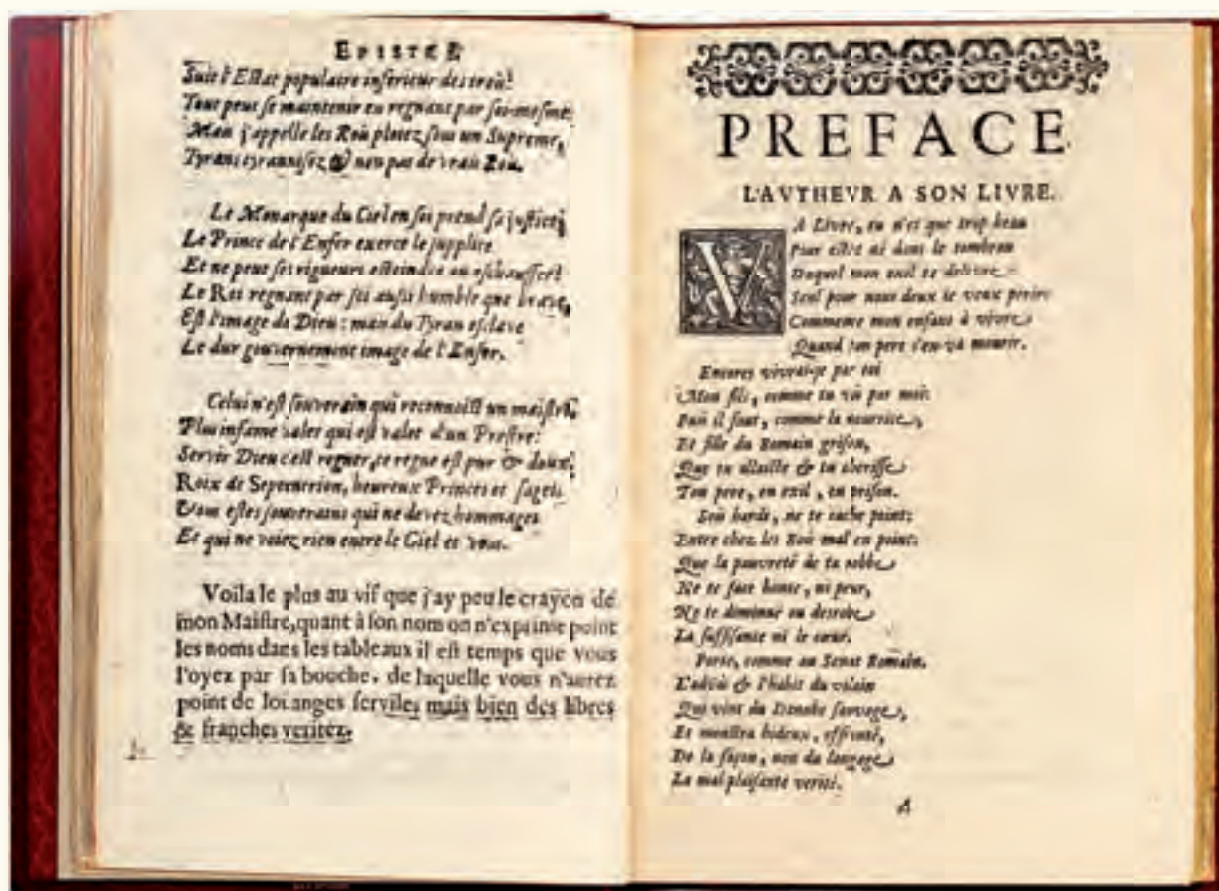 EPISTRE
Suit l'Estat populaire inferieur des trois:
Tout peut se maintenir en regnant par soi-mesme:
Mais j'appelle les Rois ploiez sous un Supreme,
Tyrans tyrannisez & non pas de vrais Rois.
Le Monarque du Ciel en soi prend sa justice,
Le Prince de l'Enfer exerce le supplice
Et ne peut ses rigueurs esteindre ou eschauffer:
Le Roi regnant par soi aussi humble que brave,
Est l'image de Dieu: mais du Tyran esclave
Le dur gouvernement image de l'Enfer.
Celui n'est souverain qui reconnoist un maistre,
Plus infame valet qui est valet d'un Prestre:
Servir Dieu c'est regner, ce regne est pur & doux:
Roix de Septentrion, heureux Princes et sages
Vous estes souverains qui ne devez hommages
Et qui ne voiez rien entre le Ciel et vous.
Voila le plus au vif que j'ay peu le crayon de
mon Maistre, quant à son nom on n'exprime point
les noms dans les tableaux il est temps que vous
l'oyez par sa bouche, de laquelle vous n'aurez
point de loüanges serviles mais bien des libres
& franches veritez.
PREFACE
L'AVTHEVR A SON LIVRE.
VA Livre, tu n'es que trop beau
Pour estre né dans le tombeau
Duquel mon exil te delivre
Seul pour nous deux je veux perir
Commence mon enfant à vivre
Quand ton pere s'en va mourir.
Encores vivrai-je par toi
Mon fils, comme tu vis par moi:
Puis il faut, comme la nourrice,
Et fille du Romain grison,
Que tu allaitte & tu cherisse
Ton pere, en exil, en prison.
Sois hardi, ne te cache point:
Entre chez les Rois mal en point:
Que la pauvreté de ta robbe
Ne te face honte, ni peur,
Ne te diminue ou desrobe
La suffisance ni le cœur.
Porte, comme au Senat Romain,
L'advis & l'habit du vilain
Qui vint du Danube sauvage,
Et monstra hideux, effronté,
De la façon, non du langage
La mal plaisante verité.
A